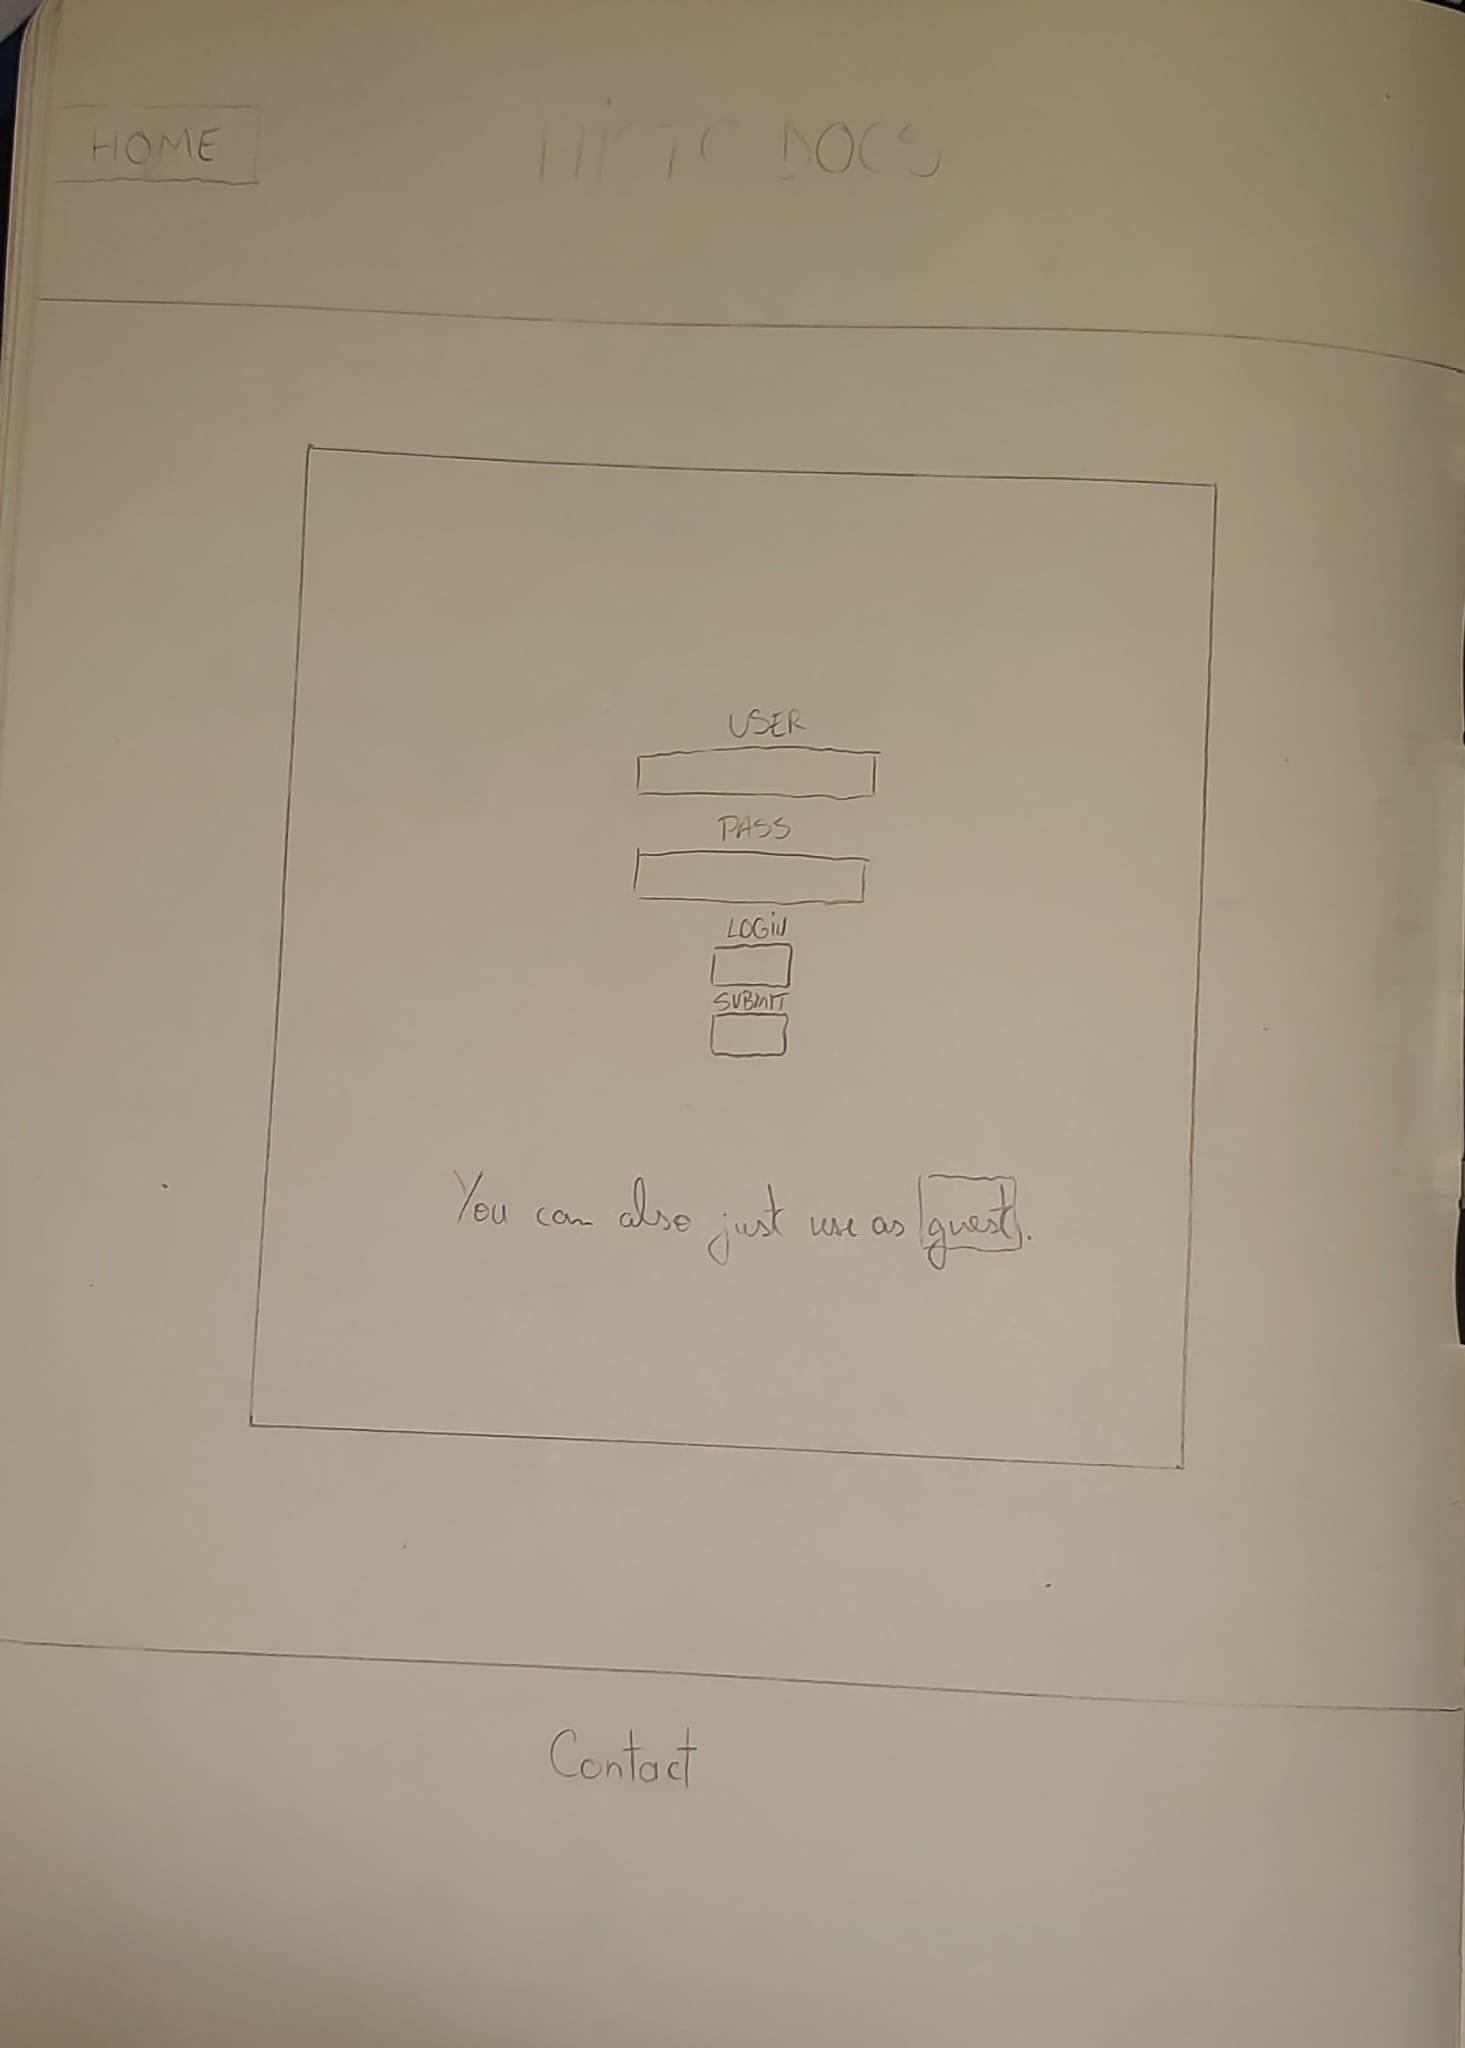 HOME
DOCS
USER
PASS
LOGiN
SUBMIT
You can also just use as guest.
Contact